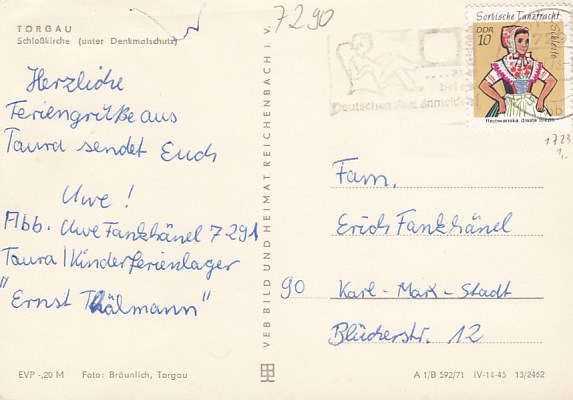 TORGAU
Schloßkirche (unter Denkmalschutz)
Herzliche
Feriengrüße aus
Taura sendet Euch
Uwe !
Abb. Uwe Fankhänel 7291
Taura/Kinderferienlager
"Ernst Thälmann"
EVP -,20 M Foto: Bräunlich, Torgau
VEB BILD UND HEIMAT REICHENBACH i. V.
7290
Sorbische Tanztracht
DDR
10
Schleife
Deutschen
1723
1,-
Fam.
Erich Fankhänel
90 Karl-Marx-Stadt
Blücherstr. 12
A 1/B 592/71 IV-14-45 13/2462